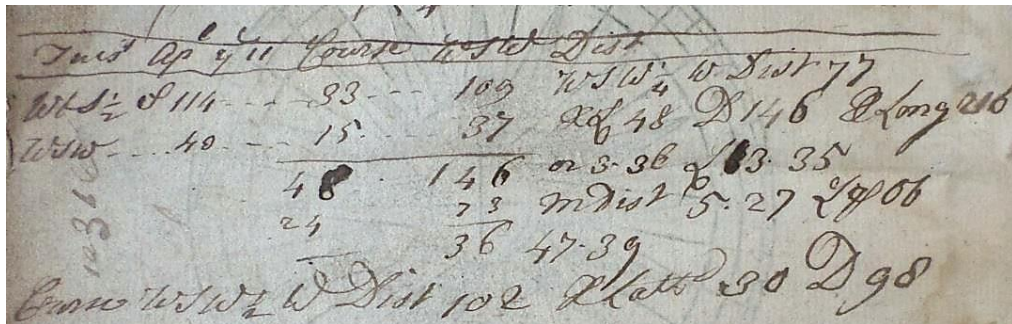 Tues Ap ye 11 Course WSW Dist
WbS½ S 114 33 109 WSW¼ W Dist 77
WSW 40 15 37 48 D 146 Long 216
48 146 or 3-36 13-35
24 73 MDist 5-27 06
36 47-39
Course WSW½ W Dist 102 Latt 30 D 98